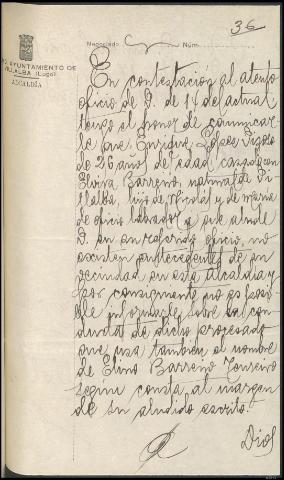 36
Negociado Núm.
AYUNTAMIENTO DE
VILLALBA (Lugo)
ALCALDÍA
En contestación al atento
oficio de V. de 14 del actual
tengo el honor de comunicar
le que Enrique López Pigote
de 26 años de edad, casado con
Elvira Barreiro, natural de Vi
llalba, hijo de Nicolás y de María
de oficio labrador y que alude
V. en su referido oficio, no
existen antecedentes de su
vecindad en esta alcaldía y
por consiguiente no es posi
ble informarle sobre la con
ducta de dicho procesado
que usa también el nombre
de Elino Barreiro Touriño
según consta al margen
de su aludido escrito.
Dios